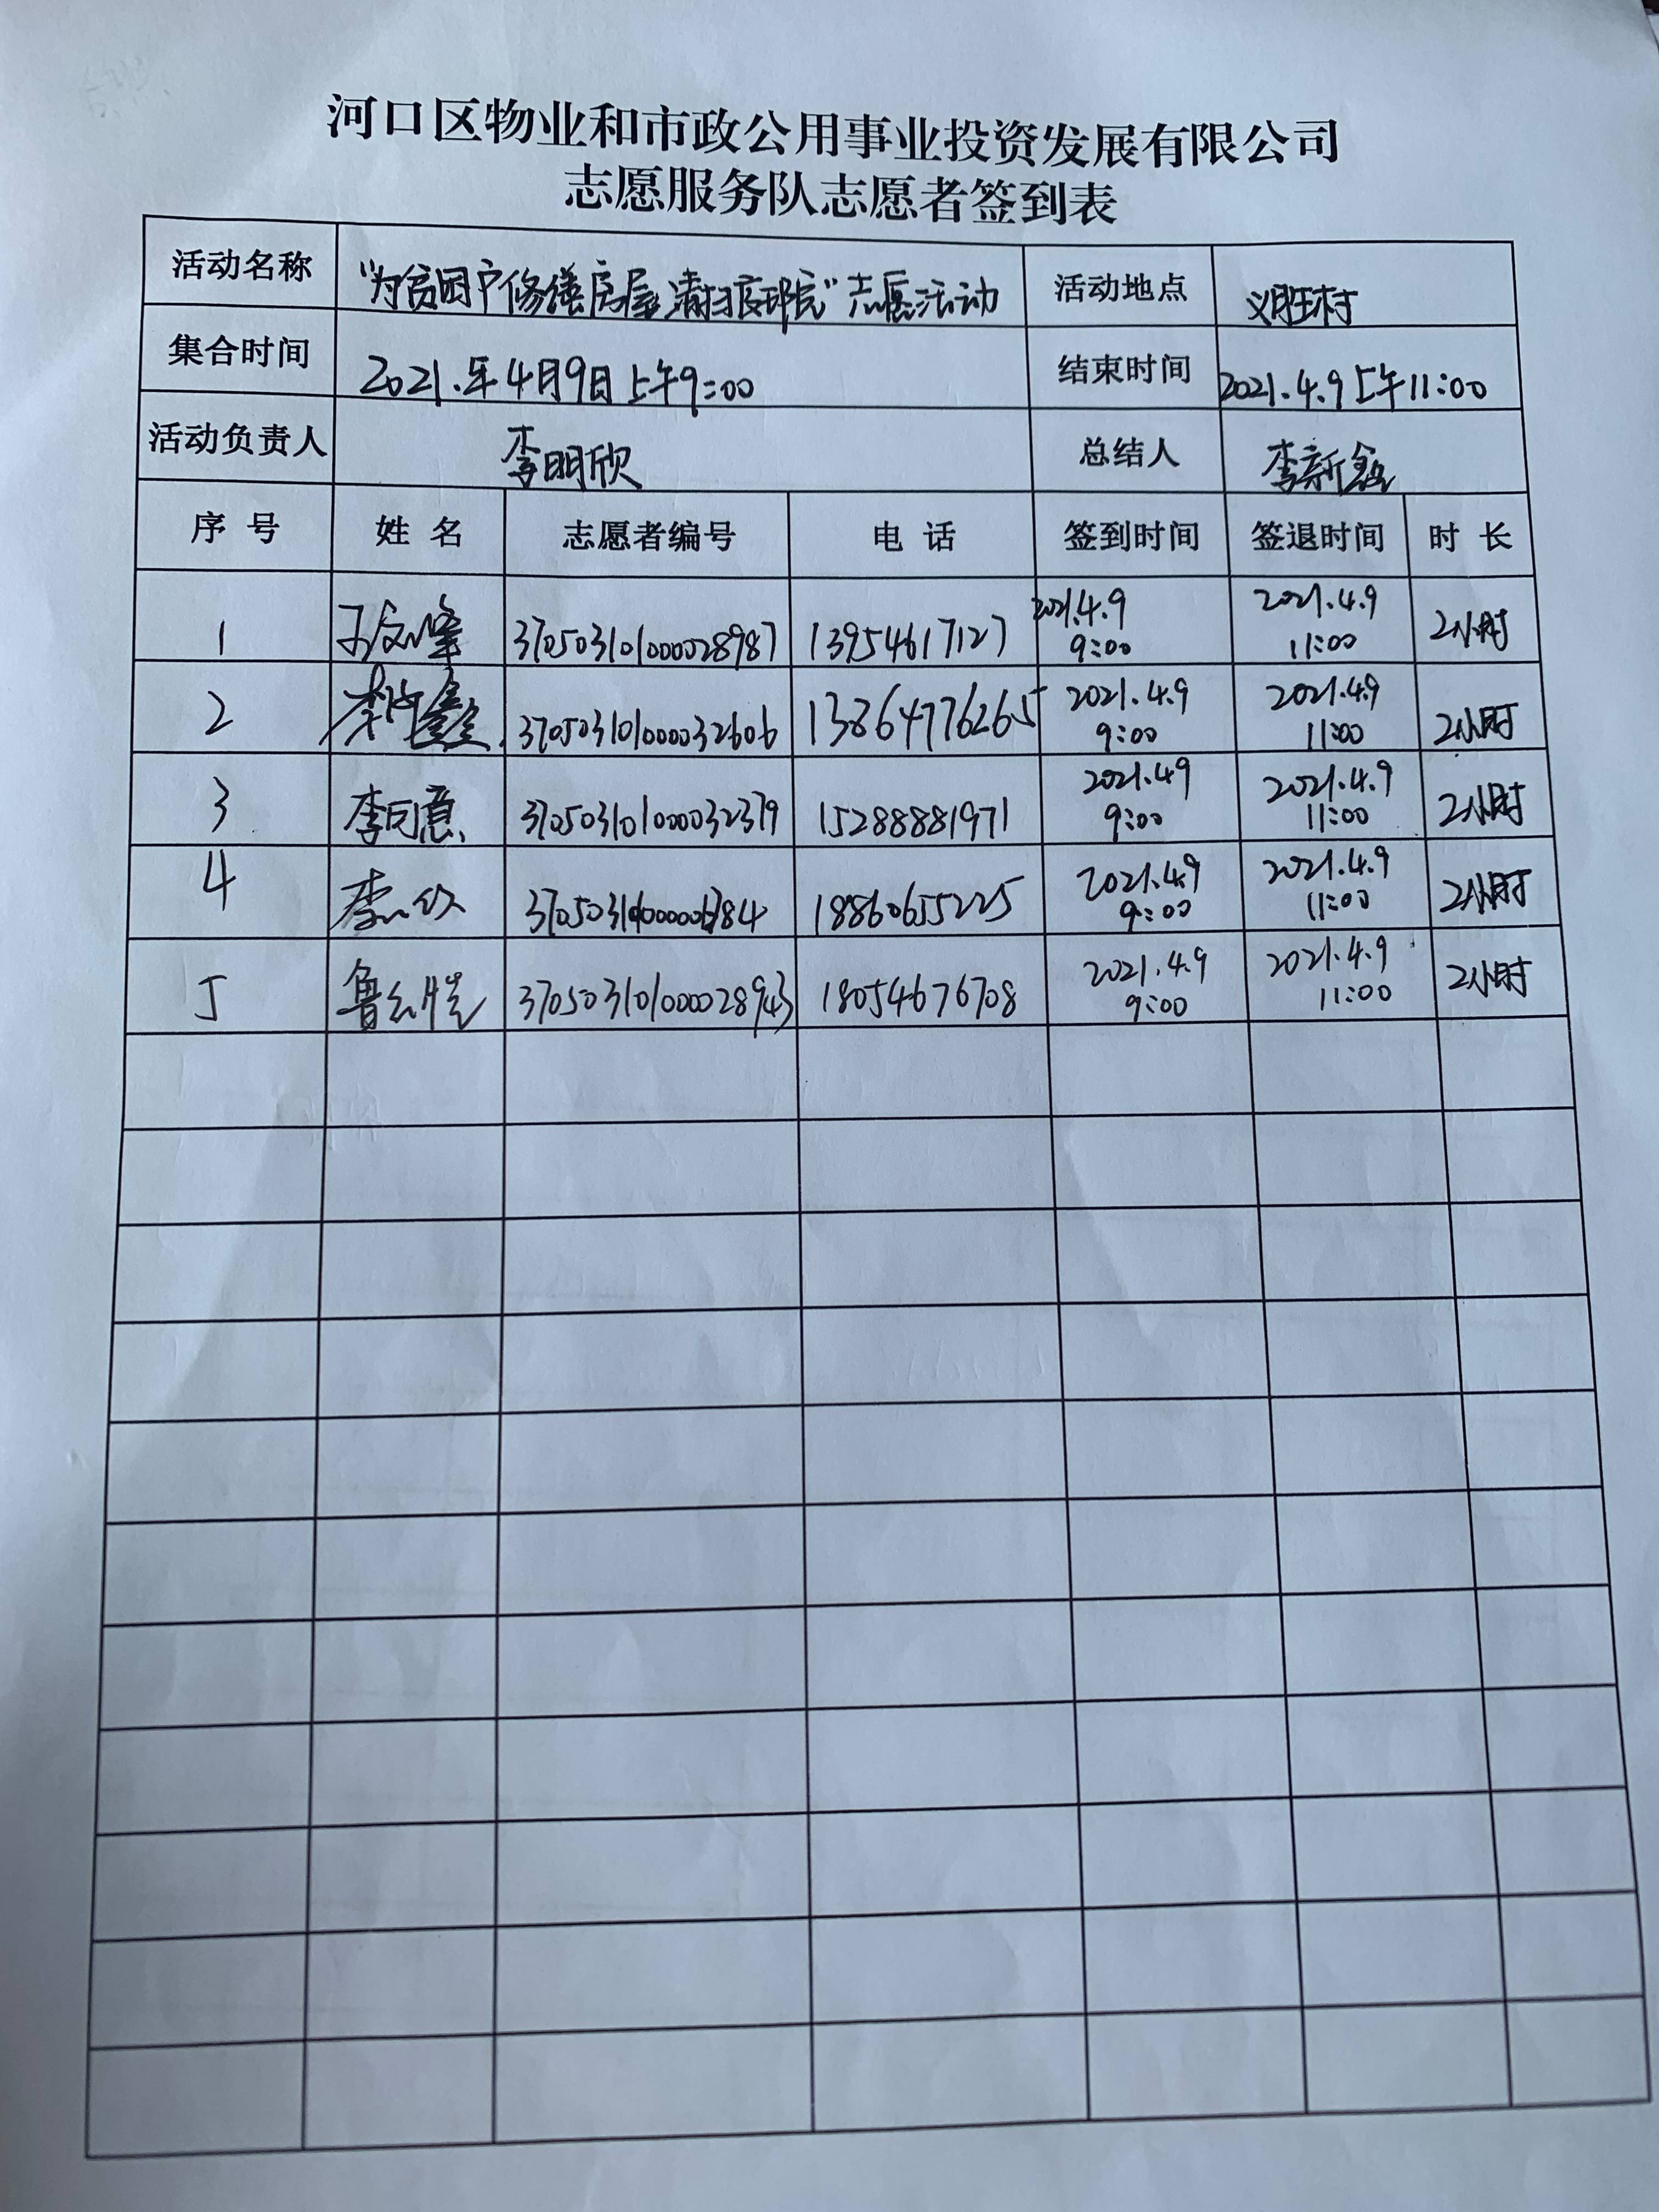 河口区物业和市政公用事业投资发展有限公司
志愿服务队志愿者签到表
活动名称 "为贫困户修缮房屋 清扫庭院"志愿活动 活动地点 义胜村
集合时间 2021.年4月9日上午9:00 结束时间 2021.4.9上午11:00
活动负责人 李明欣 总结人 李新鑫
序 号 姓 名 志愿者编号 电 话 签到时间 签退时间 时 长
1 370503101000028987 13954617127 2021.4.9 9:00 2021.4.9 11:00 2小时
2 370503101000032606 13864776265 2021.4.9 9:00 2021.4.9 11:00 2小时
3 370503101000032379 15288881971 2021.4.9 9:00 2021.4.9 11:00 2小时
4 18860655225 2021.4.9 9:00 2021.4.9 11:00 2小时
5 370503101000028943 18054676708 2021.4.9 9:00 2021.4.9 11:00 2小时